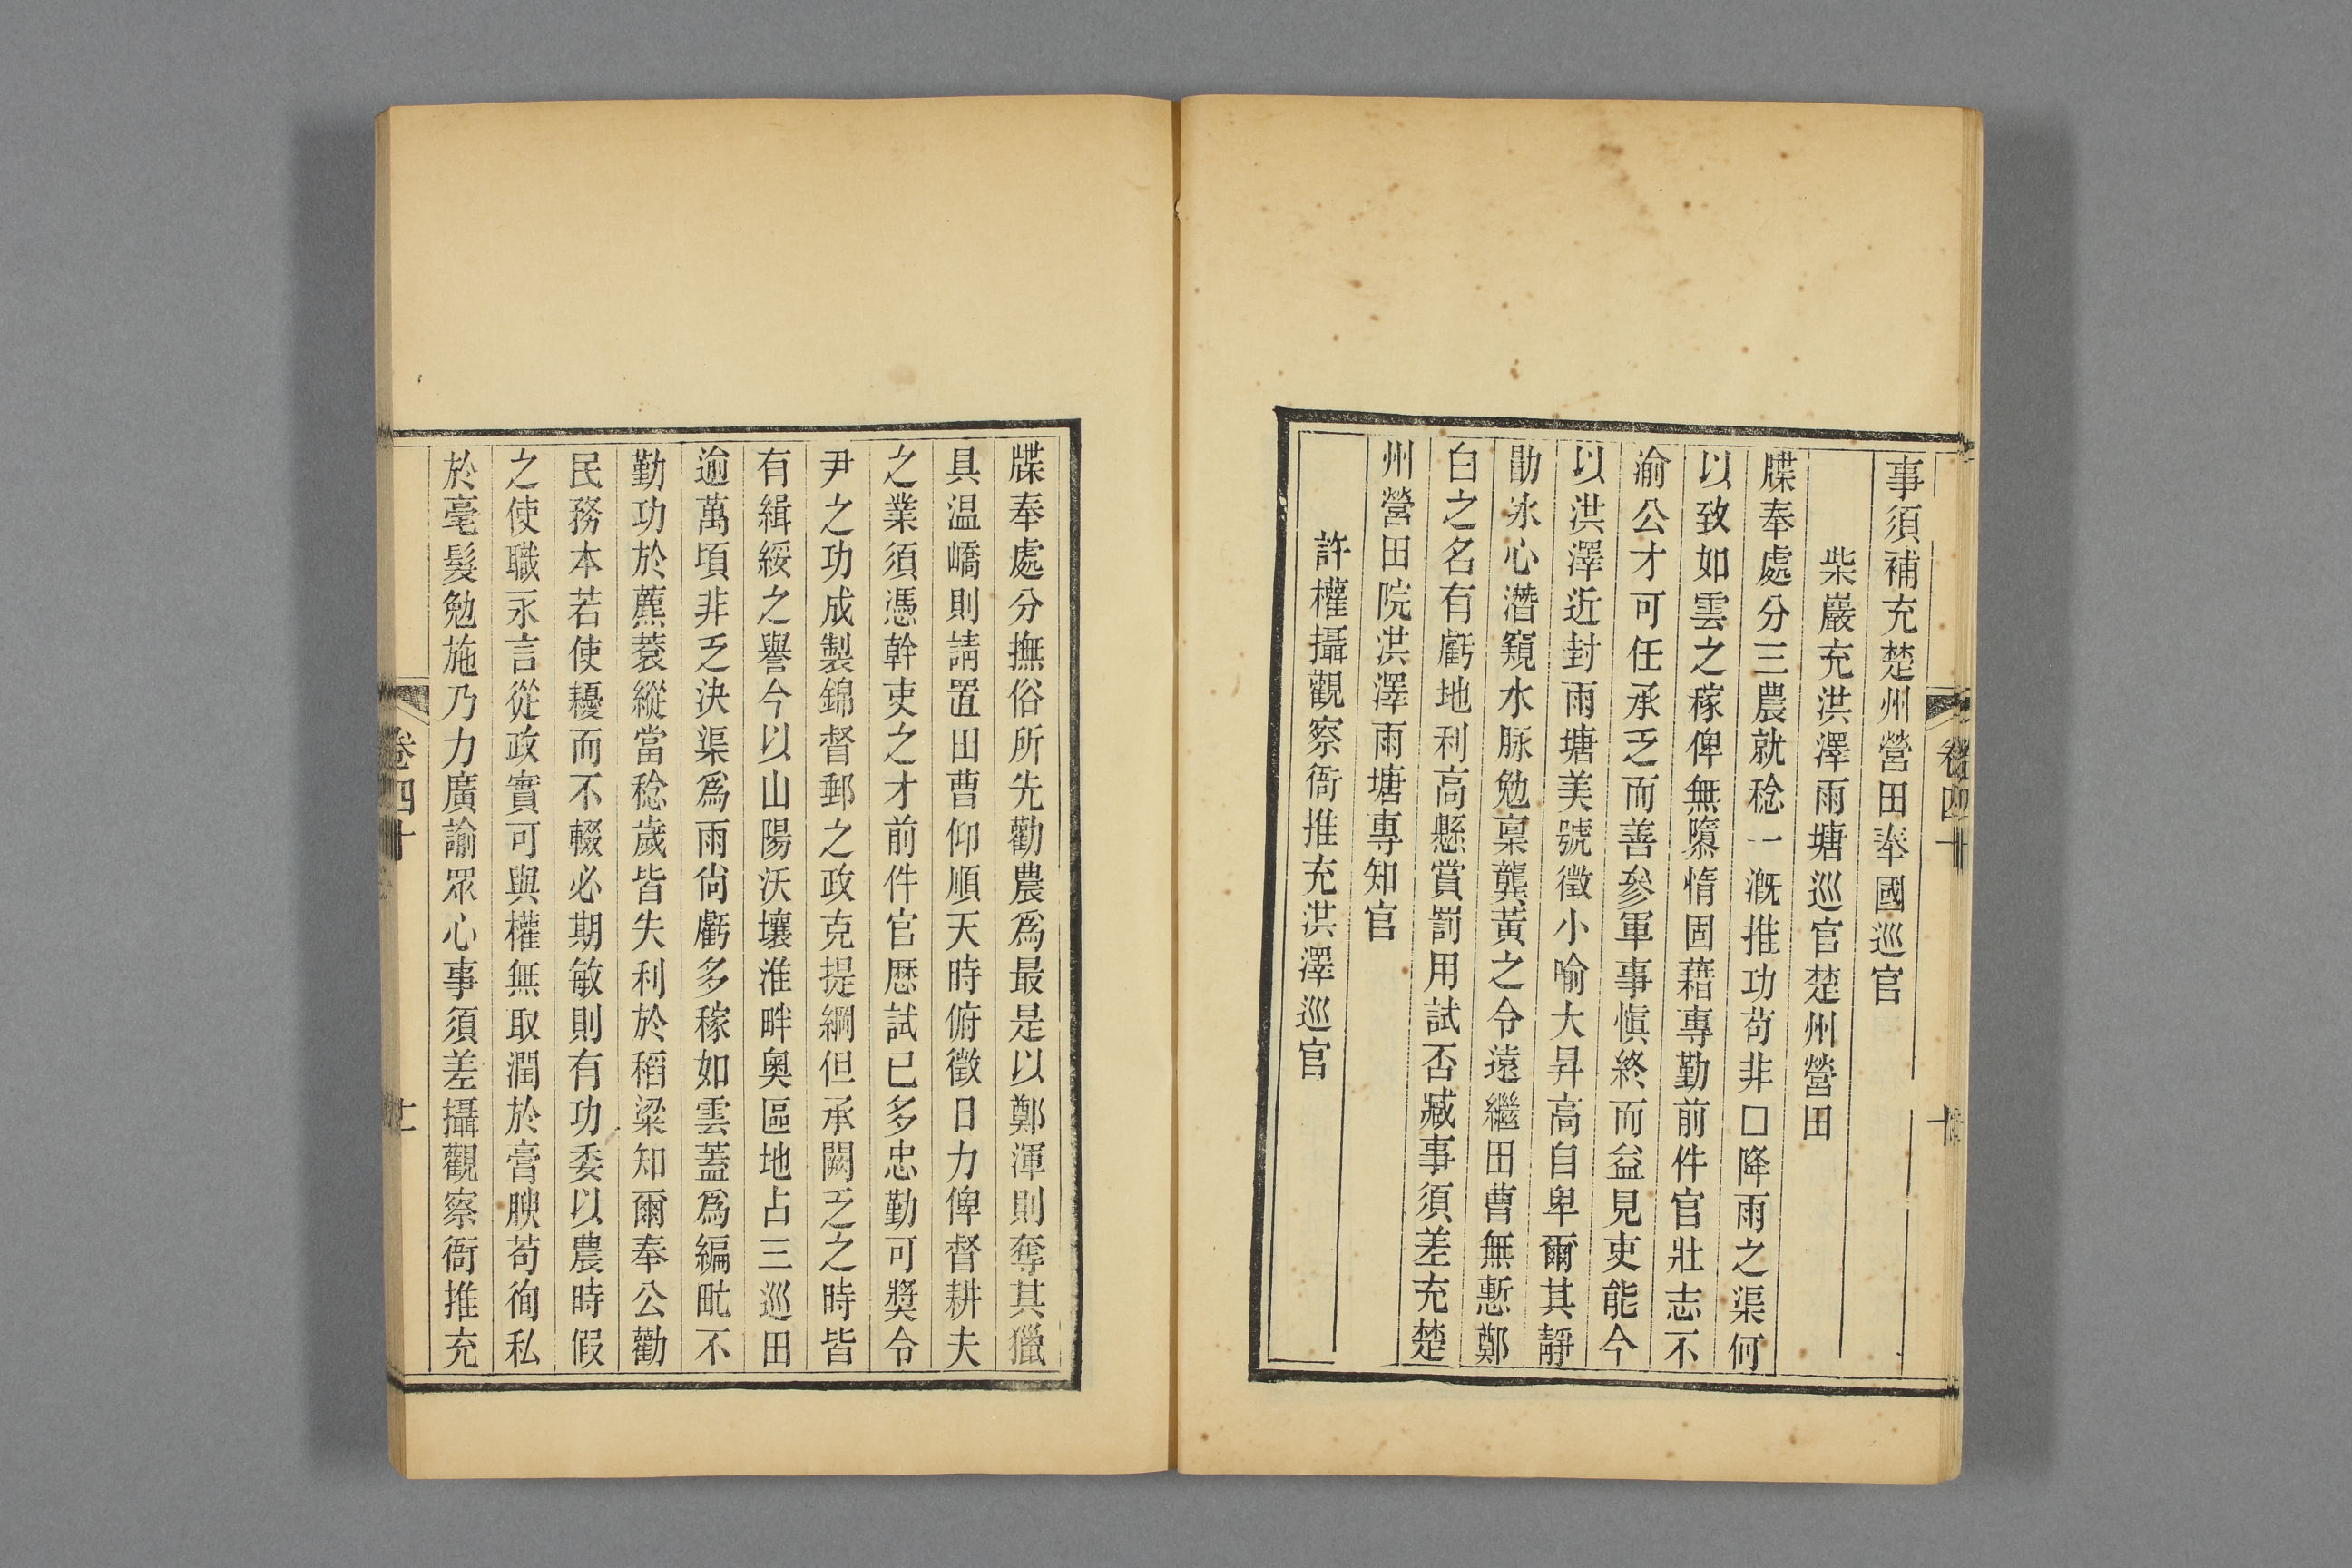 事須補充楚州營田奉國巡官
柴巖充洪澤雨塘巡官楚州營田
牒奉處分三農就稔一漑推功茍非囗降雨之渠何
以致如雲之稼俾無隳惰固藉專勤前件官壯志不
渝公才可任承乏而善參軍事愼終而益見吏能今
以洪澤近封雨塘美號徵小喻大昇高自卑爾其靜
勖氷心潛窺水脉勉稟龔黃之令遠繼田曹無慙鄭
白之名有虧地利高懸賞罰用試否臧事須差充楚
州營田院洪澤雨塘專知官
許權攝觀察衙推充洪澤巡官
牒奉處分撫俗所先勸農爲最是以鄭渾則奪其獵
具温嶠則請置田曹仰順天時俯徵日力俾督耕夫
之業須憑幹吏之才前件官歷試已多忠勤可獎令
尹之功成製錦督郵之政克提綱但承闕乏之時皆
有緝綏之譽今以山陽沃壤淮畔奧區地占三巡田
逾萬頃非乏決渠爲雨尙虧多稼如雲蓋爲編甿不
勤功於藨蓘縱當稔歲皆失利於稻粱知爾奉公勸
民務本若使耰而不輟必期敏則有功委以農時假
之使職永言從政實可與權無取潤於膏腴茍徇私
於毫髮勉施乃力廣諭眾心事須差攝觀察衙推充
卷四十